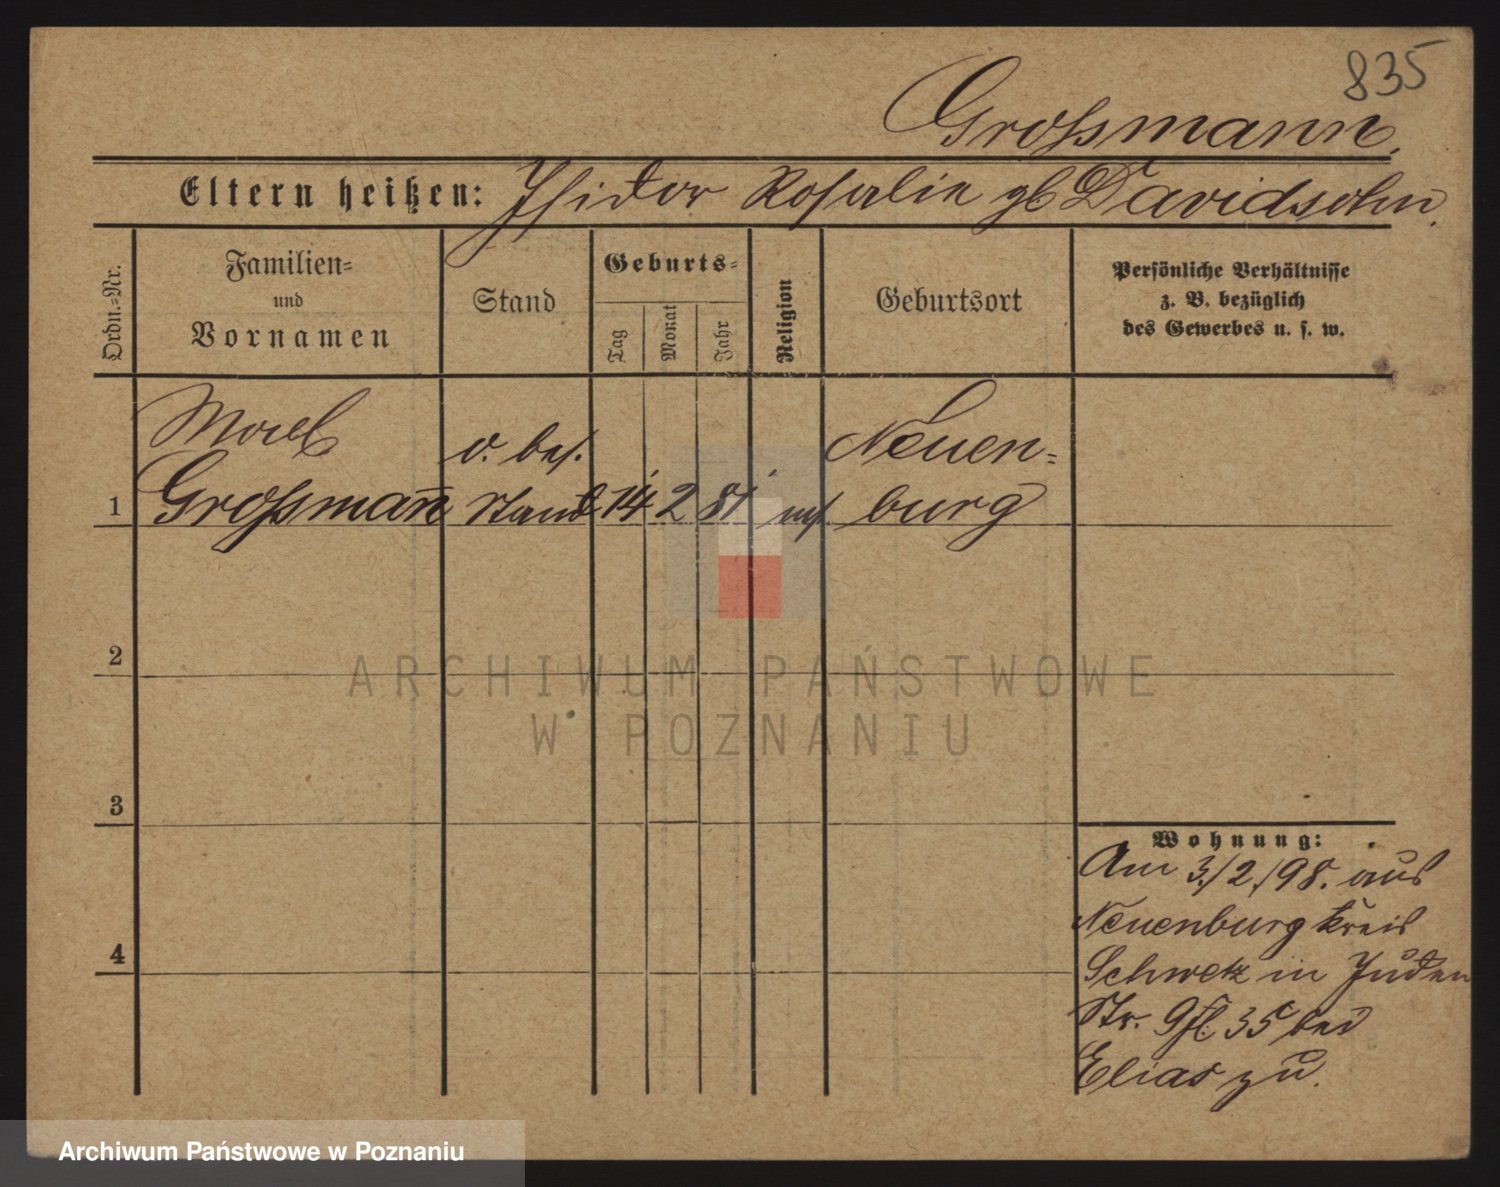 835
Großmann.
Eltern heißen: Isidor Rosalie gb Davidsohn.
Ordn.=Nr.
Familien=
und
Vornamen
Stand
Geburts=
Tag
Monat
Jahr
Religion
Geburtsort
Persönliche Verhältnisse
z. B. bezüglich
des Gewerbes u. s. w.
o. bes. Neuen=
1 Großmann Stand 14 2 81 burg
2
3
4
Wohnung:
Am 3./2./98. aus
Neuenburg Kreis
Schwetz in Juden
Str. 35 bei
Elias zu.
ARCHIWUM PAŃSTWOWE
W POZNANIU
Archiwum Państwowe w Poznaniu